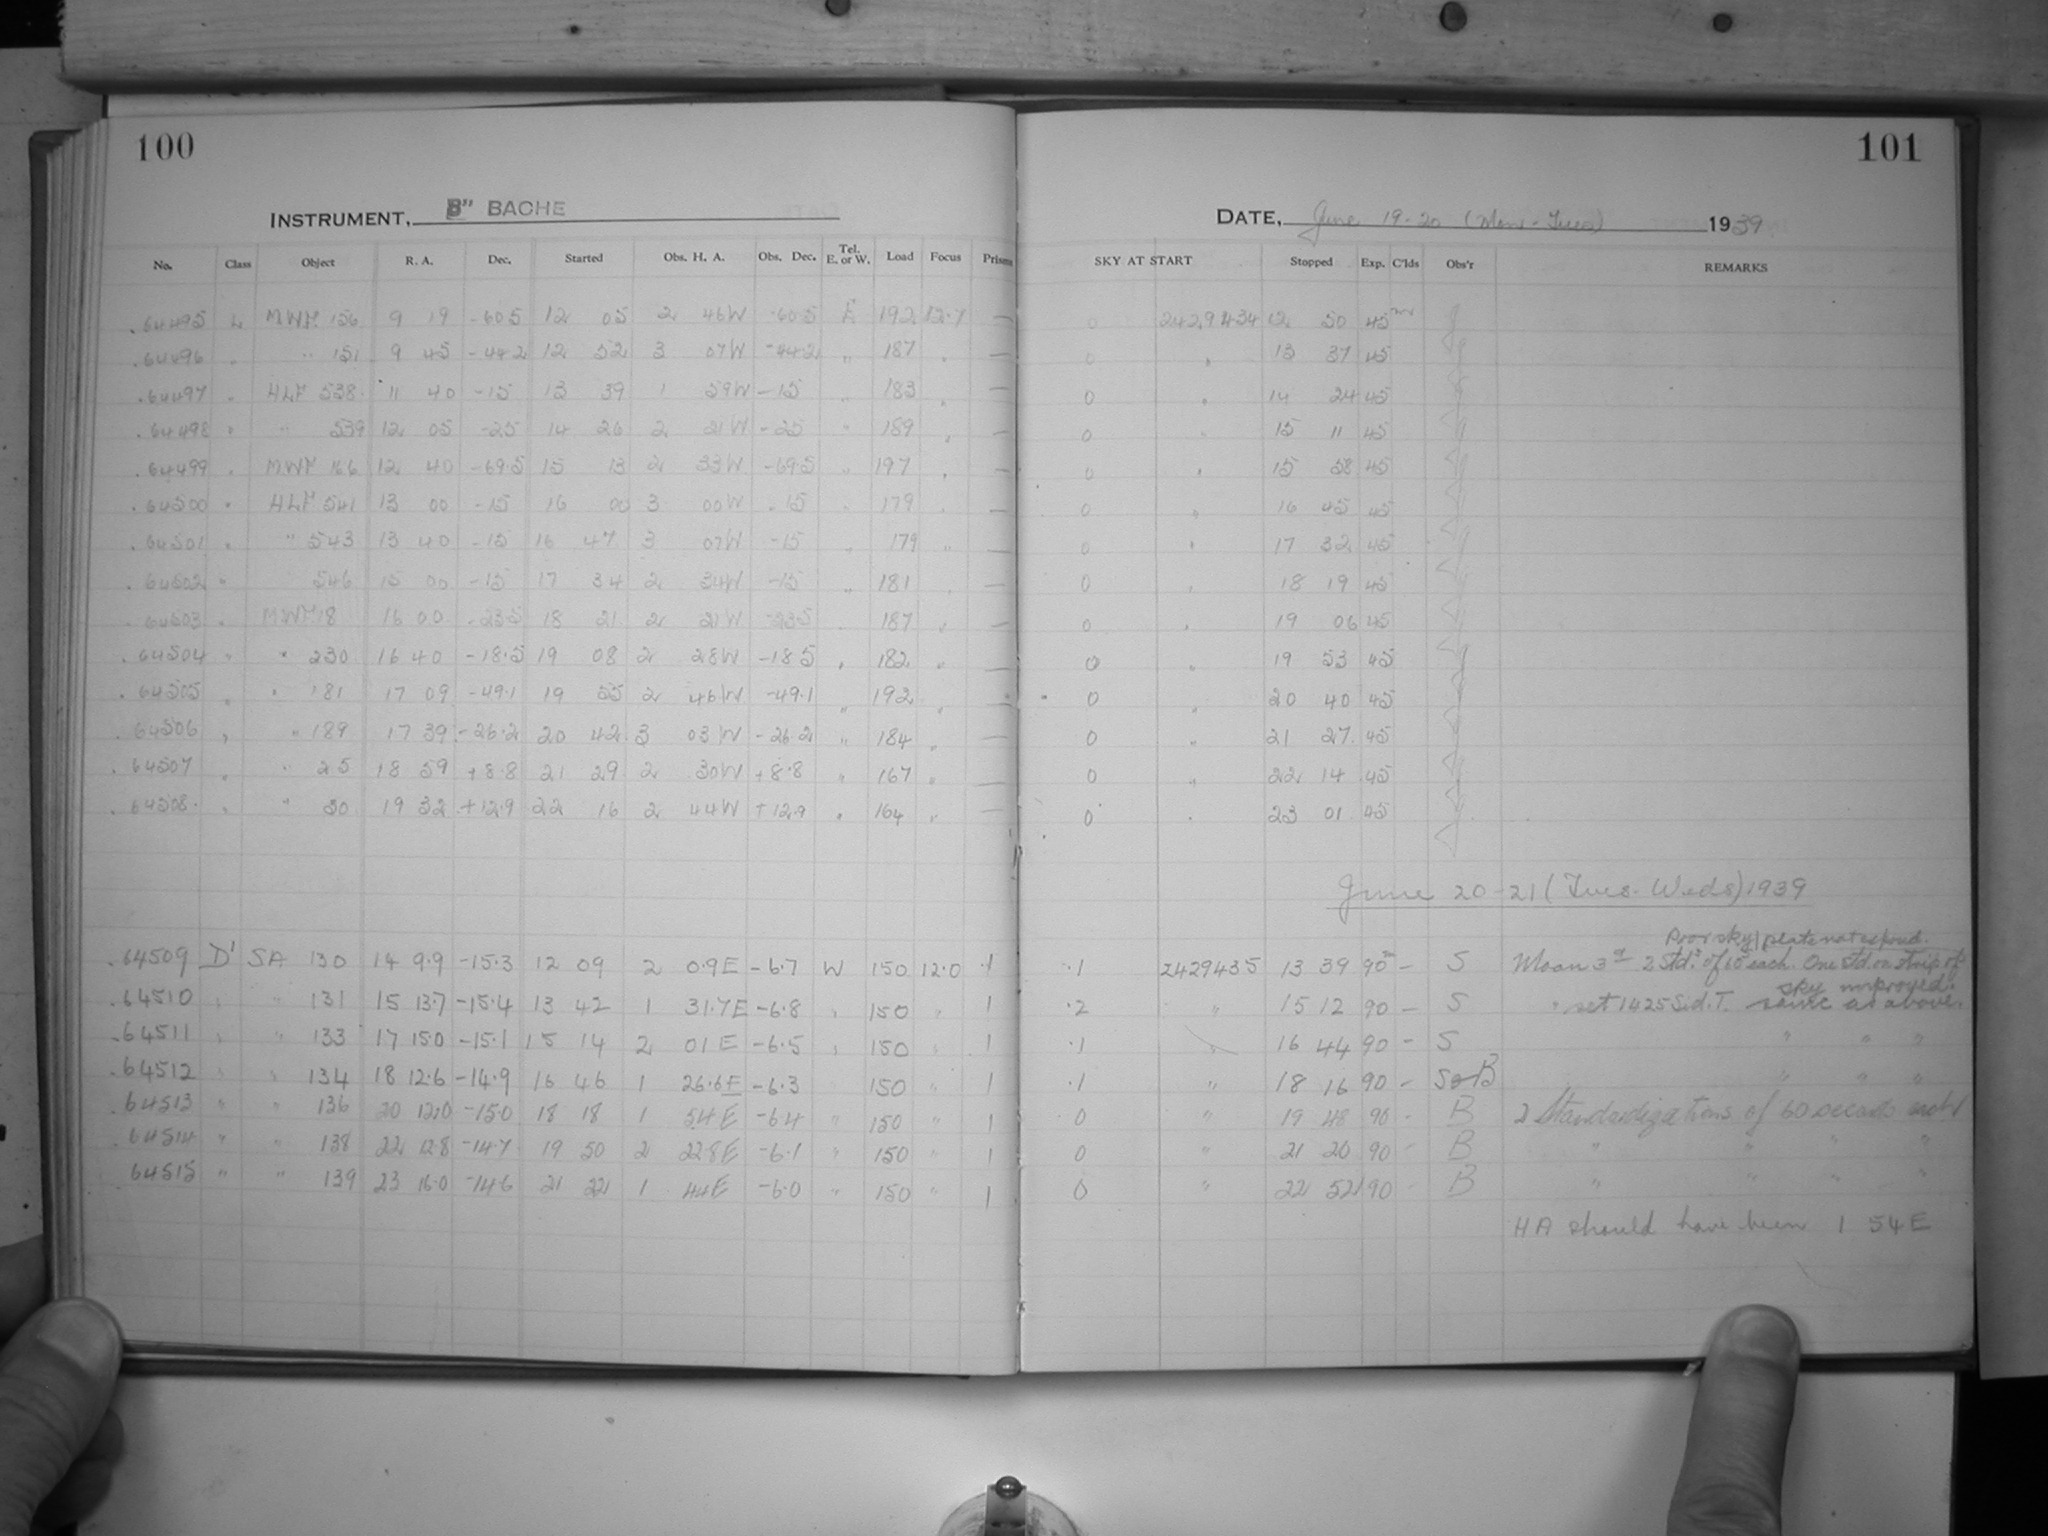 100
INSTRUMENT, B" BACHE
No. Class Object R. A. Dec. Started Obs. H. A. Obs. Dec. Tel. E. or W. Load Focus Prism
.64495 L 9 19 -60.5 12 05 2 46W -60.5 E 192 12.7 —
.64496 " " 151 9 45 -44.2 12 52 3 07W -44.2 " 187 " —
.64497 " 538 11 40 -15 13 39 1 59W -15 " 183 " —
.64498 " " 539 12 05 -25 14 26 2 21W -25 " 189 " —
.64499 " MWF 166 12 40 -69.5 15 13 2 33W -69.5 " 197 " —
.64500 " 541 13 00 -15 16 00 3 00W -15 " 179 " —
.64501 " " 543 13 40 -15 16 47 3 07W -15 " 179 " —
.64502 " 546 15 00 -15 17 34 2 34W -15 " 181 " —
.64503 " MWF 18 16 00 -23.5 18 21 2 21W -23.5 " 187 " —
.64504 " " 230 16 40 -18.5 19 08 2 28W -18.5 " 182 " —
.64505 " " 181 17 09 -49.1 19 55 2 46W -49.1 " 192 " —
.64506 " " 189 17 39 -26.2 20 42 3 03W -26.2 " 184 " —
.64507 " " 25 18 59 +8.8 21 29 2 30W +8.8 " 167 " —
.64508 " " 30 19 32 +12.9 22 16 2 44W +12.9 " 164 " —
.64509 D' SA 130 14 9.9 -15.3 12 09 2 0.9E -6.7 W 150 12.0 1
.64510 " " 131 15 13.7 -15.4 13 42 1 31.7E -6.8 " 150 " 1
.64511 " " 133 17 15.0 -15.1 15 14 2 01E -6.5 " 150 " 1
.64512 " " 134 18 12.6 -14.9 16 46 1 26.6E -6.3 " 150 " 1
.64513 " " 136 20 12.0 -15.0 18 18 1 54E -6.4 " 150 " 1
.64514 " " 138 22 12.8 -14.7 19 50 2 22.8E -6.1 " 150 " 1
64515 " " 139 23 16.0 -14.6 21 22 1 44E -6.0 " 150 " 1
101
DATE, June 19-20 (Mon-Tues) 1939
SKY AT START Stopped Exp. C'lds Obs'r REMARKS
0 2429434 12 50 45
0 " 13 37 45
0 " 14 24 45
0 " 15 11 45
0 " 15 58 45
0 " 16 45 45
0 " 17 32 45
0 " 18 19 45
0 " 19 06 45
0 " 19 53 45
0 " 20 40 45
0 " 21 27 45
0 " 22 14 45
0 " 23 01 45
June 20-21 (Tues-Weds) 1939
Poor sky plate not
.1 2429435 13 39 90m — S Moon 3rd 2 Stds of 10s each. One std on strip of
sky improved.
.2 " 15 12 90 — S " set 1425 Sid. T. same as above.
.1 " 16 44 90 — S " " "
.1 " 18 16 90 — S+B " " "
0 " 19 48 90 - B 2 Standardizations of 60 seconds each
0 " 21 20 90 - B " " " "
0 " 22 52 90 - B " " " "
HA should have been 1 54E